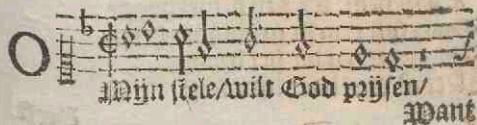 O Mijn siele/wilt God prijsen/
Want